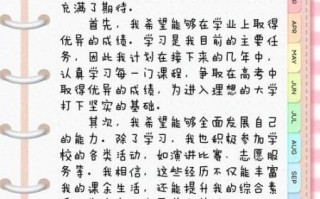 充满了期待。
首先，我希望能够在学业上取得
优异的成绩。学习是我目前的主要任
务，因此我计划在接下来的几年中，
认真学习每一门课程，争取在高考中
取得优异的成绩，为进入理想的大学
打下坚实的基础。
其次，我希望能够全面发展自己
的能力。除了学习，我也积极参加学
校的各类活动，如演讲比赛、志愿服
务等。我相信，这些经历不仅能丰富
我的课余生活，还能提升我的综合素
APR
MAY
JUN
JUL
AUG
SEP